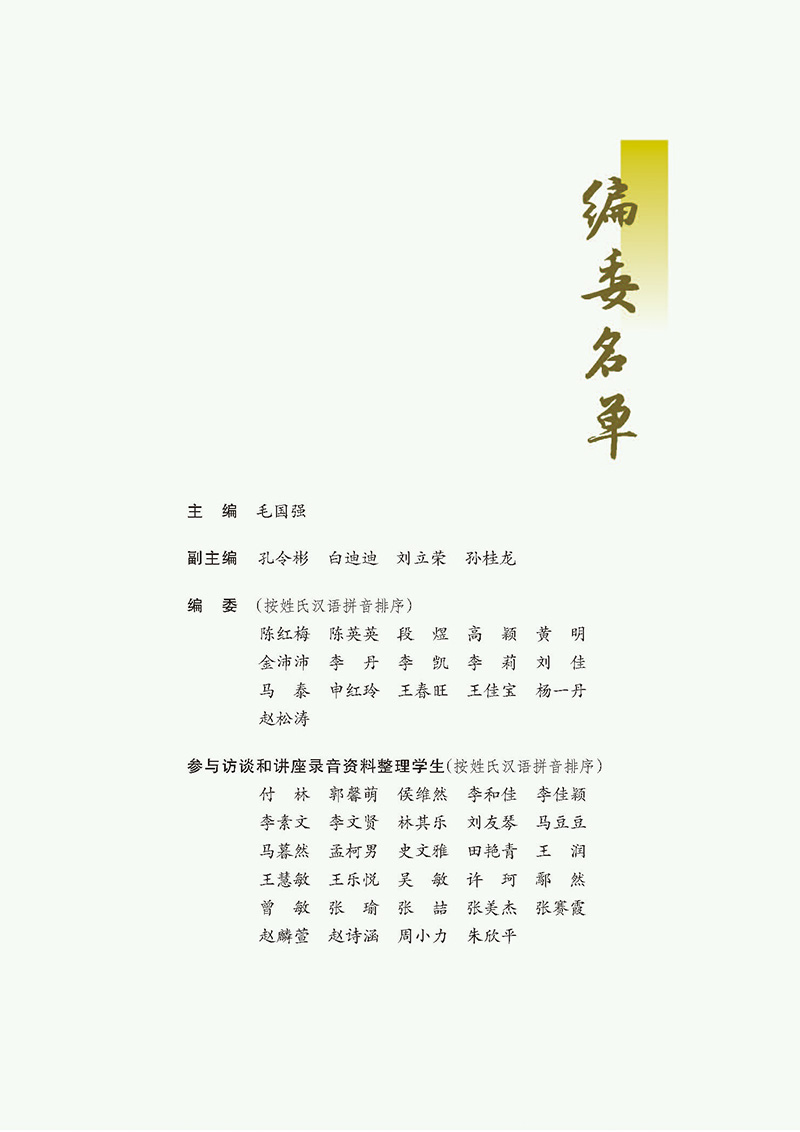 编委名单
主　编　毛国强
副主编　孔令彬　白迪迪　刘立荣　孙桂龙
编　委　(按姓氏汉语拼音排序)
陈红梅　陈英英　段　煜　高　颖　黄　明
金沛沛　李　丹　李　凯　李　莉　刘　佳
马　泰　申红玲　王春旺　王佳宝　杨一丹
赵松涛
参与访谈和讲座录音资料整理学生(按姓氏汉语拼音排序)
付　林　郭馨萌　侯维然　李和佳　李佳颖
李素文　李文贤　林其乐　刘友琴　马豆豆
马暮然　孟柯男　史文雅　田艳青　王　润
王慧敏　王乐悦　吴　敏　许　珂　鄢　然
曾　敏　张　瑜　张　喆　张美杰　张赛霞
赵麟萱　赵诗涵　周小力　朱欣平